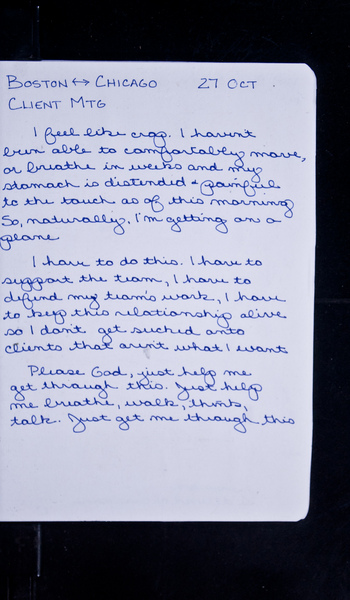 BOSTON ↔ CHICAGO 27 OCT
CLIENT MTG
I feel like crap. I haven't
been able to comfortably move,
or breathe in weeks and my
stomach is distended & painful
to the touch as of this morning
So, naturally, I'm getting on a
plane
I have to do this. I have to
support the team, I have to
defend my team's work, I have
to keep this relationship alive
so I don't get sucked onto
clients that aren't what I want
Please God, just help me
get through this. Just help
me breathe, walk, think,
talk. Just get me through this